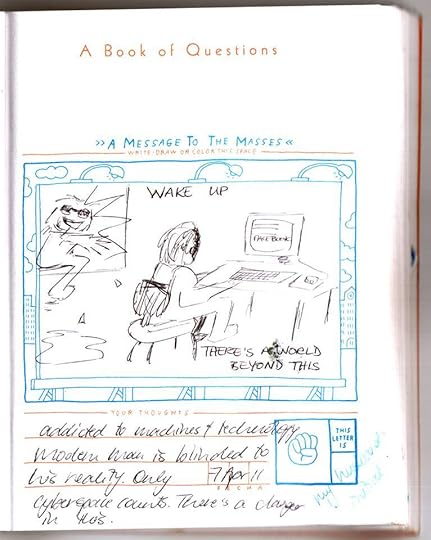 A Book of Questions
>> A MESSAGE TO THE MASSES <<
WRITE · DRAW OR COLOR THIS SPACE
WAKE UP
FACE BOOK
THERE'S A WORLD
BEYOND THIS
YOUR THOUGHTS
addicted to machines & technology
modern man is blinded to
his reality. Only
7 Apr 11
FECHA
cyberspace counts. There's a danger
in this.
THIS
LETTER
IS
my husband's